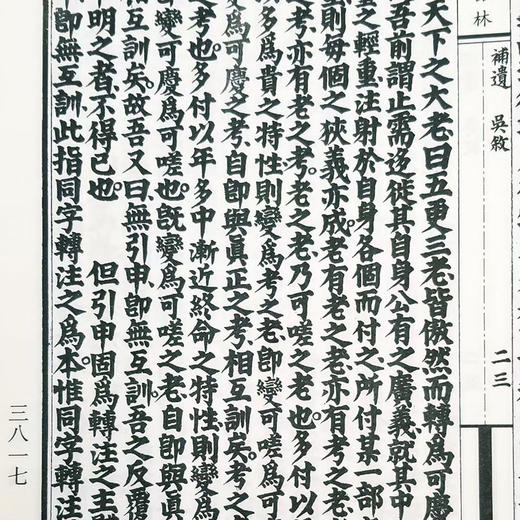 林
補遺 吳敘
二三
天下之大老、曰五更三老、皆傲然而轉為可慶
吾前謂止需迻徙其自身公有之廣義、就其中
之輕重注射於自身各個而付之、所付某一部
則每個之狹義亦成、老有老之老、亦有考之
考、亦有老之考、老之老、乃可嗟之老也、多付以
多為貴之特性、則變為考之老、即變可嗟為
為可慶之考、自即與真正之考、相互訓矣、考之
之考也、多付以年多中漸近終命之特性、則變為
變可慶為可嗟也、既變為可嗟之老、自即與真
相互訓矣、故吾又曰、無引申、即無互訓、吾之反覆
申明之者、不得已也、　但引申固為轉注之主
即無互訓、此指同字轉注之為本、惟同字轉注
三八一七